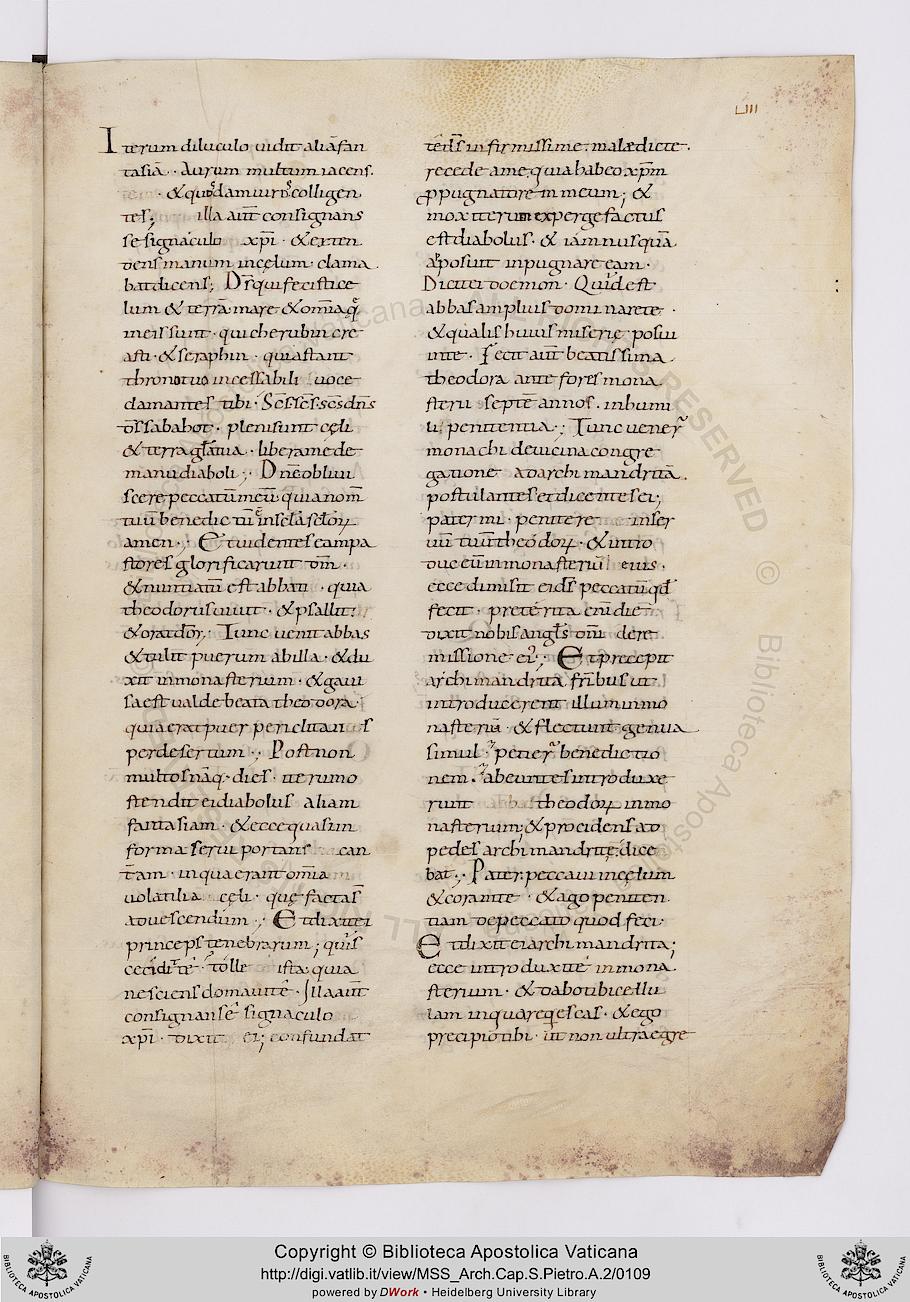 LIII
Iterum diluculo uidit aliā fan
tasiā · Aurum multum iacens.
· & quosdam uiros colligen
tes; illa aut̄ consignans
se signaculo xp̄i · & exten
dens manum in cęlum · clama
bat dicens; D̄s qui fecisti ce
lum & terrā mare & om̄ia q̄
in eis sunt · qui cherubin cre
asti · & seraphin · qui astant
throno tuo incessabili uoce
clamantes tibi · Sc̄s · sc̄s · sc̄s dn̄s
d̄s sabahot · pleni sunt cęli
& terra gl̄a tua · libera me de
manu diaboli ·; Dn̄e obliui
scere peccatū meū quia nom̄
tuū benedictū ē in scl̄a scl̄oꝝ
amen ·; Et uidentes eam pa
stores glorificarunt dm̄ ·
& nuntiatū est abbati · quia
theodorus uiuit · & psallit
& orat dn̄m · Tunc uenit abbas
& tulit puerum ab illa · & du
xit in monasterium · & gaui
sa est ualde beata theodora ·
quia erat puer periclitans
per desertum ·; Post non
multos nāq · dies · iterum o
stendit ei diabolus aliam
fantasiam · & ecce quasi in
forma serui portans can
tām · in qua erant om̄ia
uolatilia cęli · quę facta s̄
ad uescendum ·; Et dixit ei
princeps tenebrarum; quis
cecidit te · tolle ista; quia
nesciens domauit te · Illa aut̄
consignans se signaculo
xp̄i · dixit ei; confundat
te ih̄s infirmissime · maledicte ·
recede a me; quia habeo xp̄m
ꝓpugnatorē meum; &
mox iterum expergefactus
est diabolus · & iam nusquā
aposuit inpugnare eam ·
Dicite domon · Quid est
abbas amplius domi narete ·
& qualis huius miserię posui
in te · Fecit aut̄ beatissima
theodora ante fores mona
sterii septē annos · in humi
li penitentia ·; Tunc uener̄
monachi de uicina congre
gatione ad archimandritā ·
postulantes et dicentes ei;
pater mi · penitere in ser
uū tuū theodorꝝ · & intro
duc eū in monasteriū eius ·
ecce dimisit ei d̄s peccatū qđ
fecit · preterita enī die
dixit nobis angl̄s dn̄i de re
missione ei ·; Et precepit
archimandrita frībus ut
introducerent illum in mo
nasteriū · & flectunt genua
simul · peter̄ benedictio
nem · abeuntes introduxe
runt theodoꝝ in mo
nasterium; & procidens ad
pedes archimandritę; dice
bat ·; Pater; peccaui in cęlum
& coram te · & ago peniten
tiam de peccato quod feci ·
Et dixit ei archimandrita;
ecce introduxi te in mona
sterium · & dabo tibi cellu
lam in qua reqescas · & ego
precipio tibi · ut non ultra egre
Copyright © Biblioteca Apostolica Vaticana
http://digi.vatlib.it/view/MSS_Arch.Cap.S.Pietro.A.2/0109
powered by DWork • Heidelberg University Library